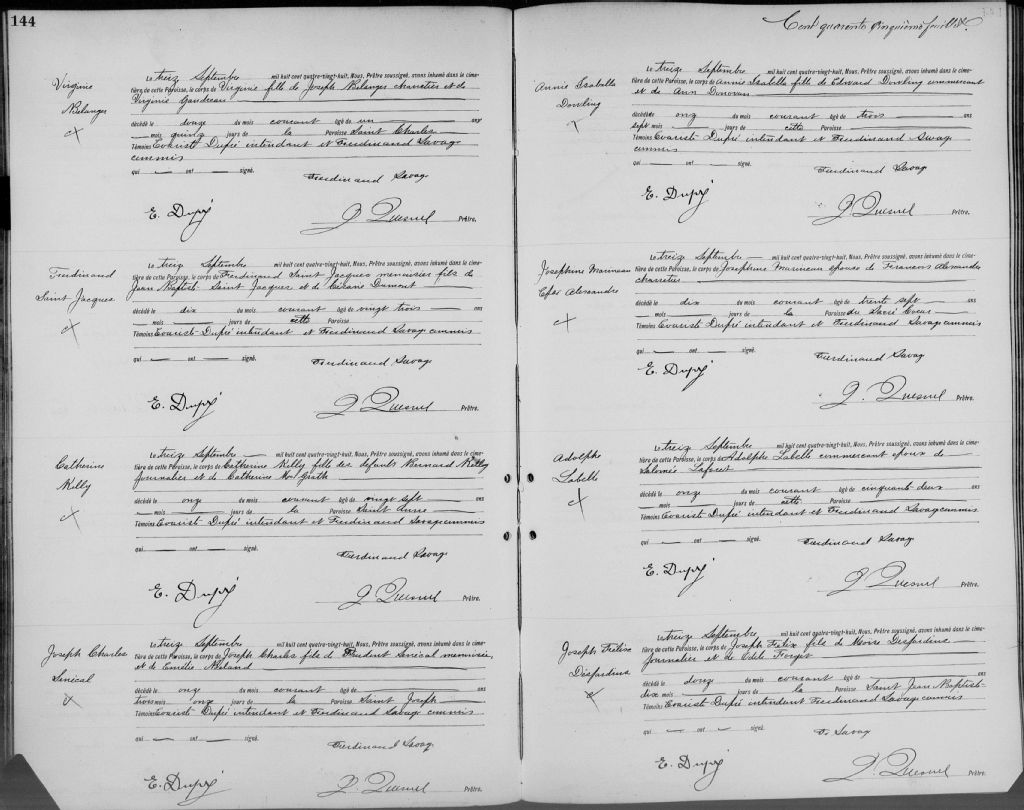 144
Virginie
Belanger
Le treize Septembre mil huit cent quatre-vingt-huit, Nous, Prêtre soussigné, avons inhumé dans le cime-
tière de cette Paroisse, le corps de Virginie fille de Joseph Belanger charretier et de
Virginie Gaudreau
décédé le douze du mois courant âgé de un ans
mois quinze jours de la Paroisse Saint Charles
Témoins Evariste Dupré intendant et Ferdinand Savage
commis
qui — ont — signé.
Ferdinand Savage
E. Dupré
J. Quesnel Prêtre.
Ferdinand
Saint Jacques
Le treize Septembre mil huit cent quatre-vingt-huit, Nous, Prêtre soussigné, avons inhumé dans le cime-
tière de cette Paroisse, le corps de Ferdinand Saint Jacques menuisier fils de
Jean Baptiste Saint Jacques et de Césarie Dumont
décédé le dix du mois courant âgé de vingt trois ans
— mois — jours de cette Paroisse
Témoins Evariste Dupré intendant et Ferdinand Savage commis
qui — ont — signé.
Ferdinand Savage
E. Dupré
J. Quesnel Prêtre.
Catherine
Kelly
Le treize Septembre mil huit cent quatre-vingt-huit, Nous, Prêtre soussigné, avons inhumé dans le cime-
tière de cette Paroisse, le corps de Catherine Kelly fille des défunts Bernard Kelly
journalier et de Catherine Mc Grath
décédé le onze du mois courant âgé de vingt sept ans
— mois — jours de la Paroisse Sainte Anne
Témoins Evariste Dupré intendant et Ferdinand Savage commis
qui — ont — signé.
Ferdinand Savage
E. Dupré
J. Quesnel Prêtre.
Joseph Charles
Senécal
Le treize Septembre mil huit cent quatre-vingt-huit, Nous, Prêtre soussigné, avons inhumé dans le cime-
tière de cette Paroisse, le corps de Joseph Charles fils de Prudent Senécal menuisier,
et de Emélie
décédé le onze du mois courant âgé de ans
trois mois onze jours de la Paroisse Saint Joseph
Témoins Evariste Dupré intendant et Ferdinand Savage commis
qui — ont — signé.
Ferdinand Savage
E. Dupré
J. Quesnel Prêtre.
Cent quarante cinquième feuillet.
Annie Isabella
Dowling
Le treize Septembre mil huit cent quatre-vingt-huit, Nous, Prêtre soussigné, avons inhumé dans le cime-
tière de cette Paroisse, le corps de Annie Isabella fille de Edward Dowling commercant
et de Ann Donovan
décédée le onze du mois courant âgé de trois ans
sept mois — jours de cette Paroisse
Témoins Evariste Dupré intendant et Ferdinand Savage
commis
qui — ont — signé.
Ferdinand Savage
E. Dupré
J. Quesnel Prêtre.
Josephine Marineau
Epse Alexandre
Le treize Septembre mil huit cent quatre-vingt-huit, Nous, Prêtre soussigné, avons inhumé dans le cime-
tière de cette Paroisse, le corps de Josephine Marineau épouse de Francois Alexandre
charretier
décédé le dix du mois courant âgé de trente sept ans
— mois — jours de la Paroisse du Sacré Coeur
Témoins Evariste Dupré intendant et Ferdinand Savage commis
qui — ont — signé.
Ferdinand Savage
E. Dupré
J. Quesnel Prêtre.
Adolphe
Labelle
Le treize Septembre mil huit cent quatre-vingt-huit, Nous, Prêtre soussigné, avons inhumé dans le cime-
tière de cette Paroisse, le corps de Adolphe Labelle commercant epoux de
Salomée Laforest
décédé le onze du mois courant âgé de cinquante deux ans
— mois — jours de cette Paroisse
Témoins Evariste Dupré intendant et Ferdinand Savage commis
qui — ont — signé.
Ferdinand Savage
E. Dupré
J. Quesnel Prêtre.
Joseph Felix
Desjardins
Le treize Septembre mil huit cent quatre-vingt-huit, Nous, Prêtre soussigné, avons inhumé dans le cime-
tière de cette Paroisse, le corps de Joseph Felix fils de Moise Desjardins
journalier et de Odile Forget
décédé le douze du mois courant âgé de ans
dix mois — jours de la Paroisse Saint Jean Baptiste
Témoins Evariste Dupré intendant Ferdinand Savage commis
qui — ont — signé.
F. Savage
E. Dupré
J. Quesnel Prêtre.